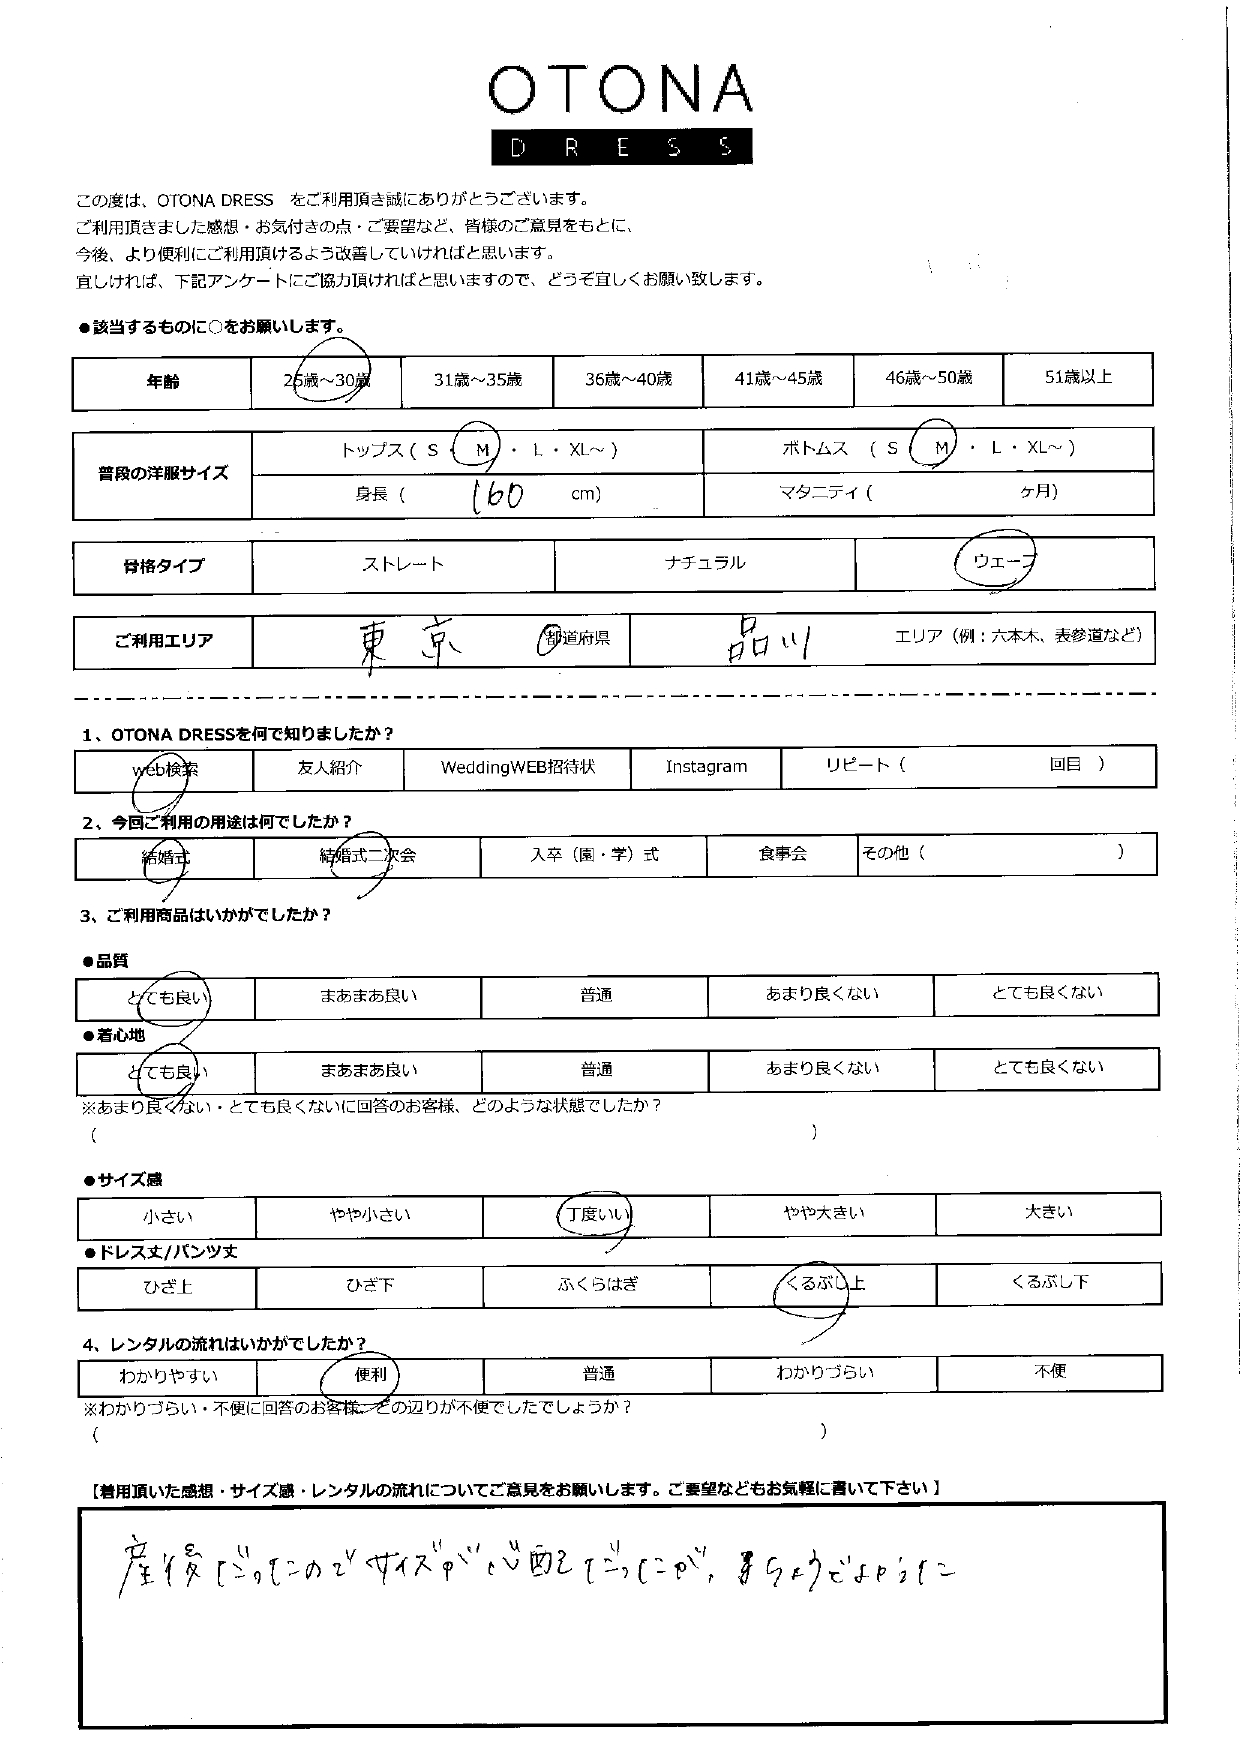 OTONA
DRESS
この度は、OTONA DRESS　をご利用頂き誠にありがとうございます。
ご利用頂きました感想・お気付きの点・ご要望など、皆様のご意見をもとに、
今後、より便利にご利用頂けるよう改善していければと思います。
宜しければ、下記アンケートにご協力頂ければと思いますので、どうぞ宜しくお願い致します。
●該当するものに○をお願いします。
年齢 25歳～30歳 31歳～35歳 36歳～40歳 41歳～45歳 46歳～50歳 51歳以上
普段の洋服サイズ トップス ( S ・ M ・ L ・ XL～ ) ボトムス ( S ・ M ・ L ・ XL～ )
身長 ( 160 cm) マタニティ ( ケ月)
骨格タイプ ストレート ナチュラル ウェーブ
ご利用エリア 東京 都道府県 品川 エリア（例：六本木、表参道など）
1、OTONA DRESSを何で知りましたか？
web検索 友人紹介 WeddingWEB招待状 Instagram リピート ( 回目 )
2、今回ご利用の用途は何でしたか？
結婚式 結婚式二次会 入卒（園・学）式 食事会 その他 ( )
3、ご利用商品はいかがでしたか？
●品質
とても良い まあまあ良い 普通 あまり良くない とても良くない
●着心地
とても良い まあまあ良い 普通 あまり良くない とても良くない
※あまり良くない・とても良くないに回答のお客様、どのような状態でしたか？
( )
●サイズ感
小さい やや小さい 丁度いい やや大きい 大きい
●ドレス丈/パンツ丈
ひざ上 ひざ下 ふくらはぎ くるぶし上 くるぶし下
4、レンタルの流れはいかがでしたか？
わかりやすい 便利 普通 わかりづらい 不便
※わかりづらい・不便に回答のお客様、どの辺りが不便でしたでしょうか？
( )
【着用頂いた感想・サイズ感・レンタルの流れについてご意見をお願いします。ご要望などもお気軽に書いて下さい】
産後だったのでサイズが心配だったが、ちょうどよかった